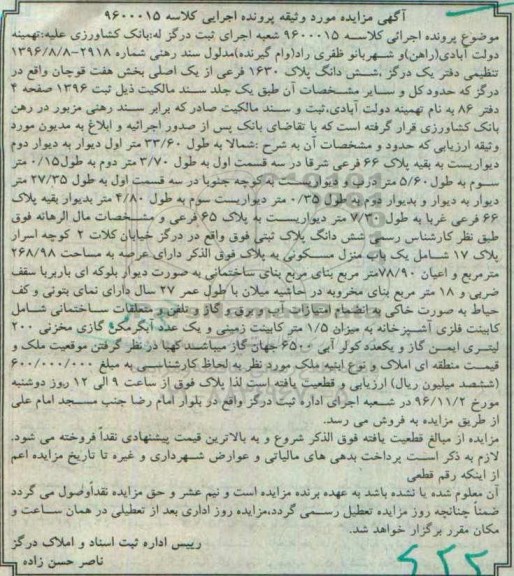 آگهی مزایده مورد وثیقه پرونده اجرایی کلاسه ۹۶۰۰۰۱۵
موضوع پرونده اجرائی کلاسه ۹۶۰۰۰۱۵ شعبه اجرای ثبت درگز له:بانک کشاورزی علیه:تهمینه
دولت آبادی(راهن)و شهربانو ظفری راد(وام گیرنده)مدلول سند رهنی شماره ۲۹۱۸-۱۳۹۶/۸/۸
تنظیمی دفتر یک درگز ،شش دانگ پلاک ۱۶۳۰ فرعی از یک اصلی بخش هفت قوچان واقع در
درگز که حدود کل و سایر مشخصات آن طبق یک جلد سند مالکیت ذیل ثبت ۱۳۹۶ صفحه ۴
دفتر ۸۶ به نام تهمینه دولت آبادی،ثبت و سند مالکیت صادر که برابر سند رهنی مزبور در رهن
بانک کشاورزی قرار گرفته است که با تقاضای بانک پس از صدور اجرائیه و ابلاغ به مدیون مورد
وثیقه ارزیابی که حدود و مشخصات آن به شرح :شمالا به طول ۳۳/۶۰ متر اول دیوار به دیوار دوم
دیواریست به بقیه پلاک ۶۶ فرعی شرقا در سه قسمت اول به طول ۳/۷۰ متر دوم به طول ۰/۱۵ متر
سوم به طول ۵/۶۰ متر درب و دیواریست به کوچه جنوبا در سه قسمت اول به طول ۲۷/۳۵ متر
دیوار به دیوار و بدیوار دوم به طول ۰/۳۵ متر دیواریست سوم به طول ۴/۸۰ متر بدیوار بقیه پلاک
۶۶ فرعی غربا به طول ۷/۳۰ متر دیواریست به پلاک ۶۵ فرعی و مشخصات مال الرهانه فوق
طبق نظر کارشناس رسمی شش دانگ پلاک ثبتی فوق واقع در درگز خیابان کلات ۲ کوچه اسرار
پلاک ۱۷ شامل یک باب منزل مسکونی به پلاک فوق الذکر دارای عرصه به مساحت ۲۶۸/۹۸
مترمربع و اعیان ۷۸/۹۰متر مربع بنای مربع بنای ساختمانی به صورت دیوار بلوکه ای باربریا سقف
ضربی و ۱۸ متر مربع بنای مخروبه در حاشیه میلان با طول عمر ۲۷ سال دارای نمای بتونی و کف
حیاط به صورت خاکی به انضمام امتیازات آب و برق و گاز و تلفن و متعلقات ساختمانی شامل
کابینت فلزی آشپزخانه به میزان ۱/۵ متر کابینت زمینی و یک عدد آبگرمکن گازی مخزنی ۲۰۰
لیتری ایمن گاز و یکعدد کولر آبی ۶۵۰۰ جهان گاز میباشند کهبا در نظر گرفتن موقعیت ملک و
قیمت منطقه ای املاک و نوع ابنیه ملک مورد نظر به لحاظ کارشناسی به مبلغ ۶۰۰/۰۰۰/۰۰۰
(ششصد میلیون ریال) ارزیابی و قطعیت یافته است لذا پلاک فوق از ساعت ۹ الی ۱۲ روز دوشنبه
مورخ ۹۶/۱۱/۲ در شعبه اجرای اداره ثبت درگز واقع در بلوار امام رضا جنب مسجد امام علی
از طریق مزایده به فروش می رسد.
مزایده از مبالغ قطعیت یافته فوق الذکر شروع و به بالاترین قیمت پیشنهادی نقداً فروخته می شود.
لازم به ذکر است پرداخت بدهی های مالیاتی و عوارض شهرداری و غیره تا تاریخ مزایده اعم
از اینکه رقم قطعی
آن معلوم شده یا نشده باشد به عهده برنده مزایده است و نیم عشر و حق مزایده نقداًوصول می گردد
ضمناً چنانچه روز مزایده تعطیل رسمی گردد،مزایده روز اداری بعد از تعطیلی در همان ساعت و
مکان مقرر برگزار خواهد شد.
رییس اداره ثبت اسناد و املاک درگز
ناصر حسن زاده